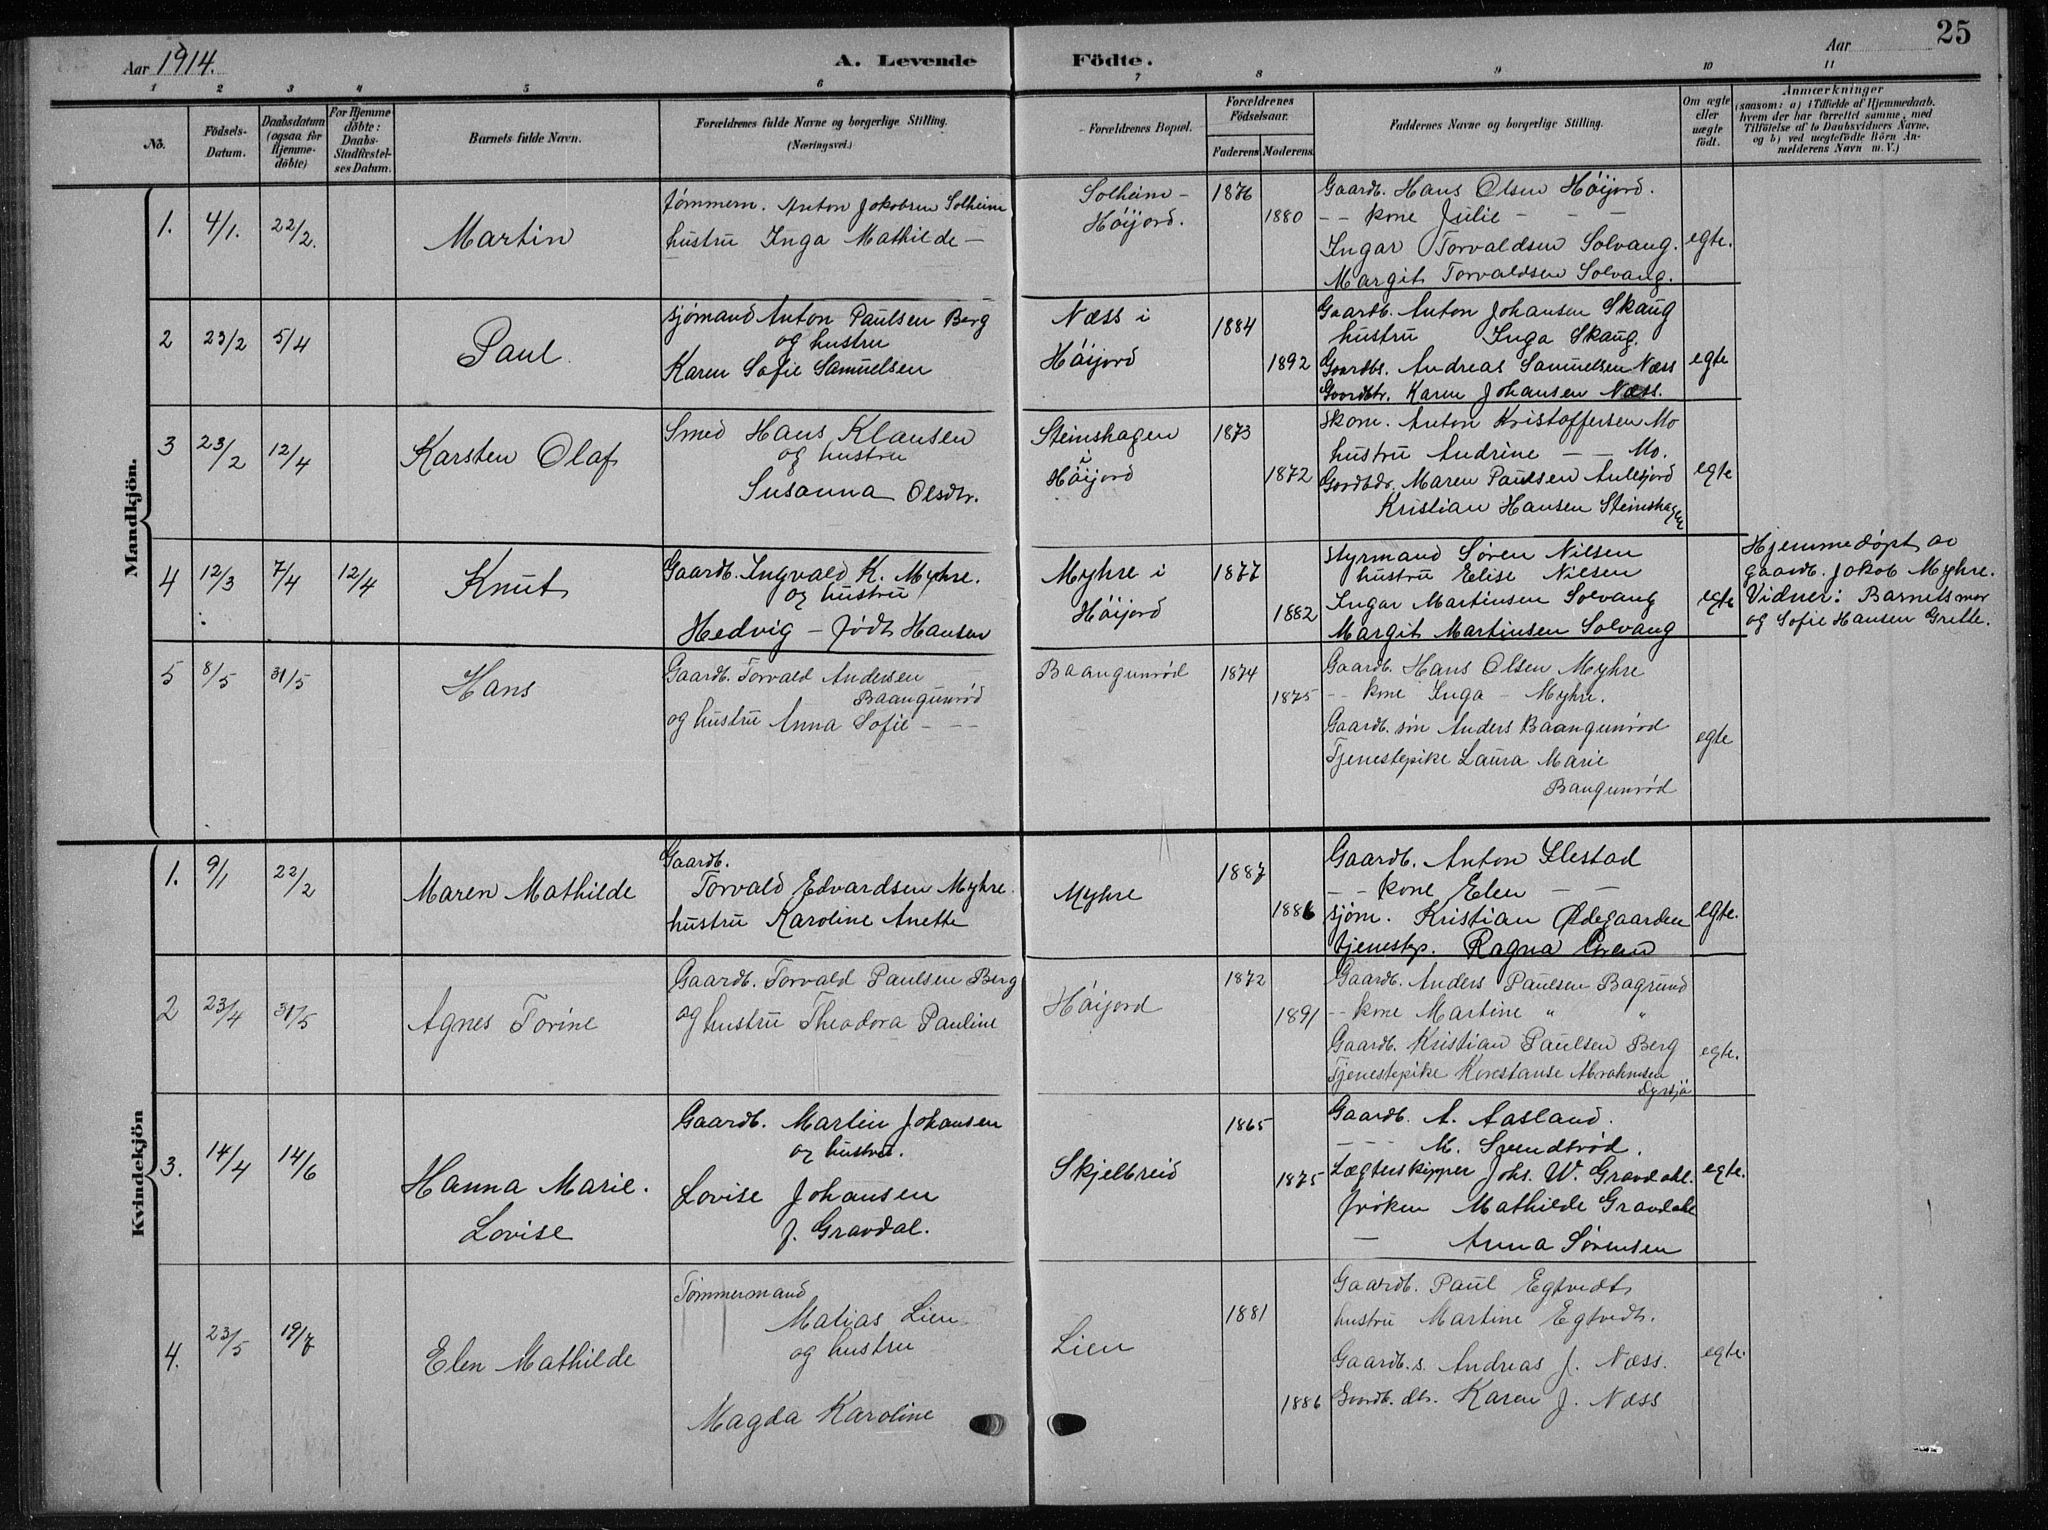 25
Aar 1914.
A. Levende Födte.
Aar
1 2 3 4 5 6 7 8 9 10 11
No.
Födsels-Datum.
Daabsdatum (ogsaa for Hjemme-döbte)
For Hjemme döbte: Daabs-Stadfæstel-ses Datum.
Barnets fulde Navn.
Forældrenes fulde Navne og borgerlige Stilling.
(Næringsvei.)
Forældrenes Bopæl.
Forældrenes Födselsaar.
Faderens Moderens.
Faddernes Navne og borgerlige Stilling.
Om ægte eller uægte födt.
Anmærkninger
(saasom: a) i Tilfælde af Hjemmedaab.
hvem der har forrettet samme, med
Tilföielse af to Daabsvidners Navne,
og b) ved uægtefödte Börn An-
melderens Navn m. V.)
Mandkjön.
1. 4/1. 22/2. Martin
tømmerm. Anton Jakobsen Solheim
hustru Inga Mathilde –
Solheim –
Höijord.
1876 1880
Gaardb. Hans Olsen Höijord.
– – kone Julie – – –
Ingar Torvaldsen Solvang.
Margit Torvaldsen Solvang.
egte.
2 23/2 5/4 Paul.
sjømand Anton Paulsen Berg
og hustru
Karen Sofie Samuelsen
Næss i
Höijord
1884 1892
Gaardb. Anton Johansen Skaug
hustru Inga Skaug.
Gaardbs. Andreas Samuelsen Næss
Gaardbtr. Karen Johansen Næss.
egte
3 23/2 12/4 Karsten Olaf
Smed Hans Klausen
og hustru
Susanna Olsdtr.
Steinshagen
i
Höijord
1873 1872
Skom. Anton Kristoffersen Mo
hustru Andrine – – Mo.
Maren Paulsen
Kristian Hansen Steinshagen
egte
4 12/3 7/4 12/4 Knut
Gaardb. Ingvald K. Myhre.
og hustru
Hedvig – født Hansen
Myhre i
Höijord
1877 1882
Styrmand Søren Nilsen
hustru Elise Nilsen
Ingar Martinsen Solvang
Margit Martinsen Solvang
egte
Hjemmedöpt av
gaardb. Jakob Myhre.
Vidner: Barnets mor
og Sofie Hansen Grette.
5 8/5 31/5 Hans
Gaardb. Torvald Andersen
Baangunrød
og hustru Anna Sofie – –
Baangunrød
1874 1875
Gaardb. Hans Olsen Myhre
– – kone Inga – Myhre.
Gaardb. søn Anders Baangunrød
Tjenestepike Laura Marie
Bangunrød
egte
Kvindekjön
1. 9/1 22/2 Maren Mathilde
Gaardb.
Torvald Edvardsen Myhre.
hustru Karoline Anette
Myhre
1887 1886
Gaardb. Anton Ilestad
– – kone Elen – –
sjøm. Kristian Ødegaarden
tjenestep. Ragna
egte.
2 23/4 31/5 Agnes Torine
Gaardb. Torvald Paulsen Berg
og hustru Theodora Pauline
Höijord
1872 1891
Gaardb. Anders Paulsen Bagrund
– – kone Martine " "
Gaardb. Kristian Paulsen Berg
Tjenestepike Konstanse Abrahmsen
egte.
3. 14/4 14/6 Hanna Marie.
Lovise
Gaardb. Martin Johansen
og hustru.
Lovise Johansen
f. Gravdal.
Skjelbreid
1865 1875
Gaardb. A. Aasland.
– – – M. Svendsrød.
Lægterskipper Johs. W. Gravdahl.
frøken Mathilde Gravdahl
– Anna Sørensen
egte.
4. 23/5 19/7 Elen Mathilde
Tømmermand
Matias Lien
og hustru
Magda Karoline
Lien
1881 1886
Gaardb. Paul Egtvedt
hustru Martine Egtvedt.
Gaardb. s. Andreas J. Næss.
Gaardb. dtr. Karen J. Næss
egte.